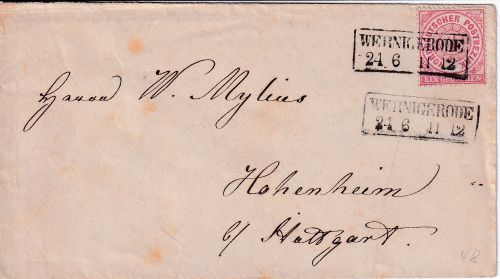 NORDDEUTSCHER POSTBEZIRK
EIN GROSCHEN
WERNIGERODE
24 6 11 12
WERNIGERODE
24 6 11 12
Herrn W. Mylius
Hohenheim
b/ Stuttgart.
48